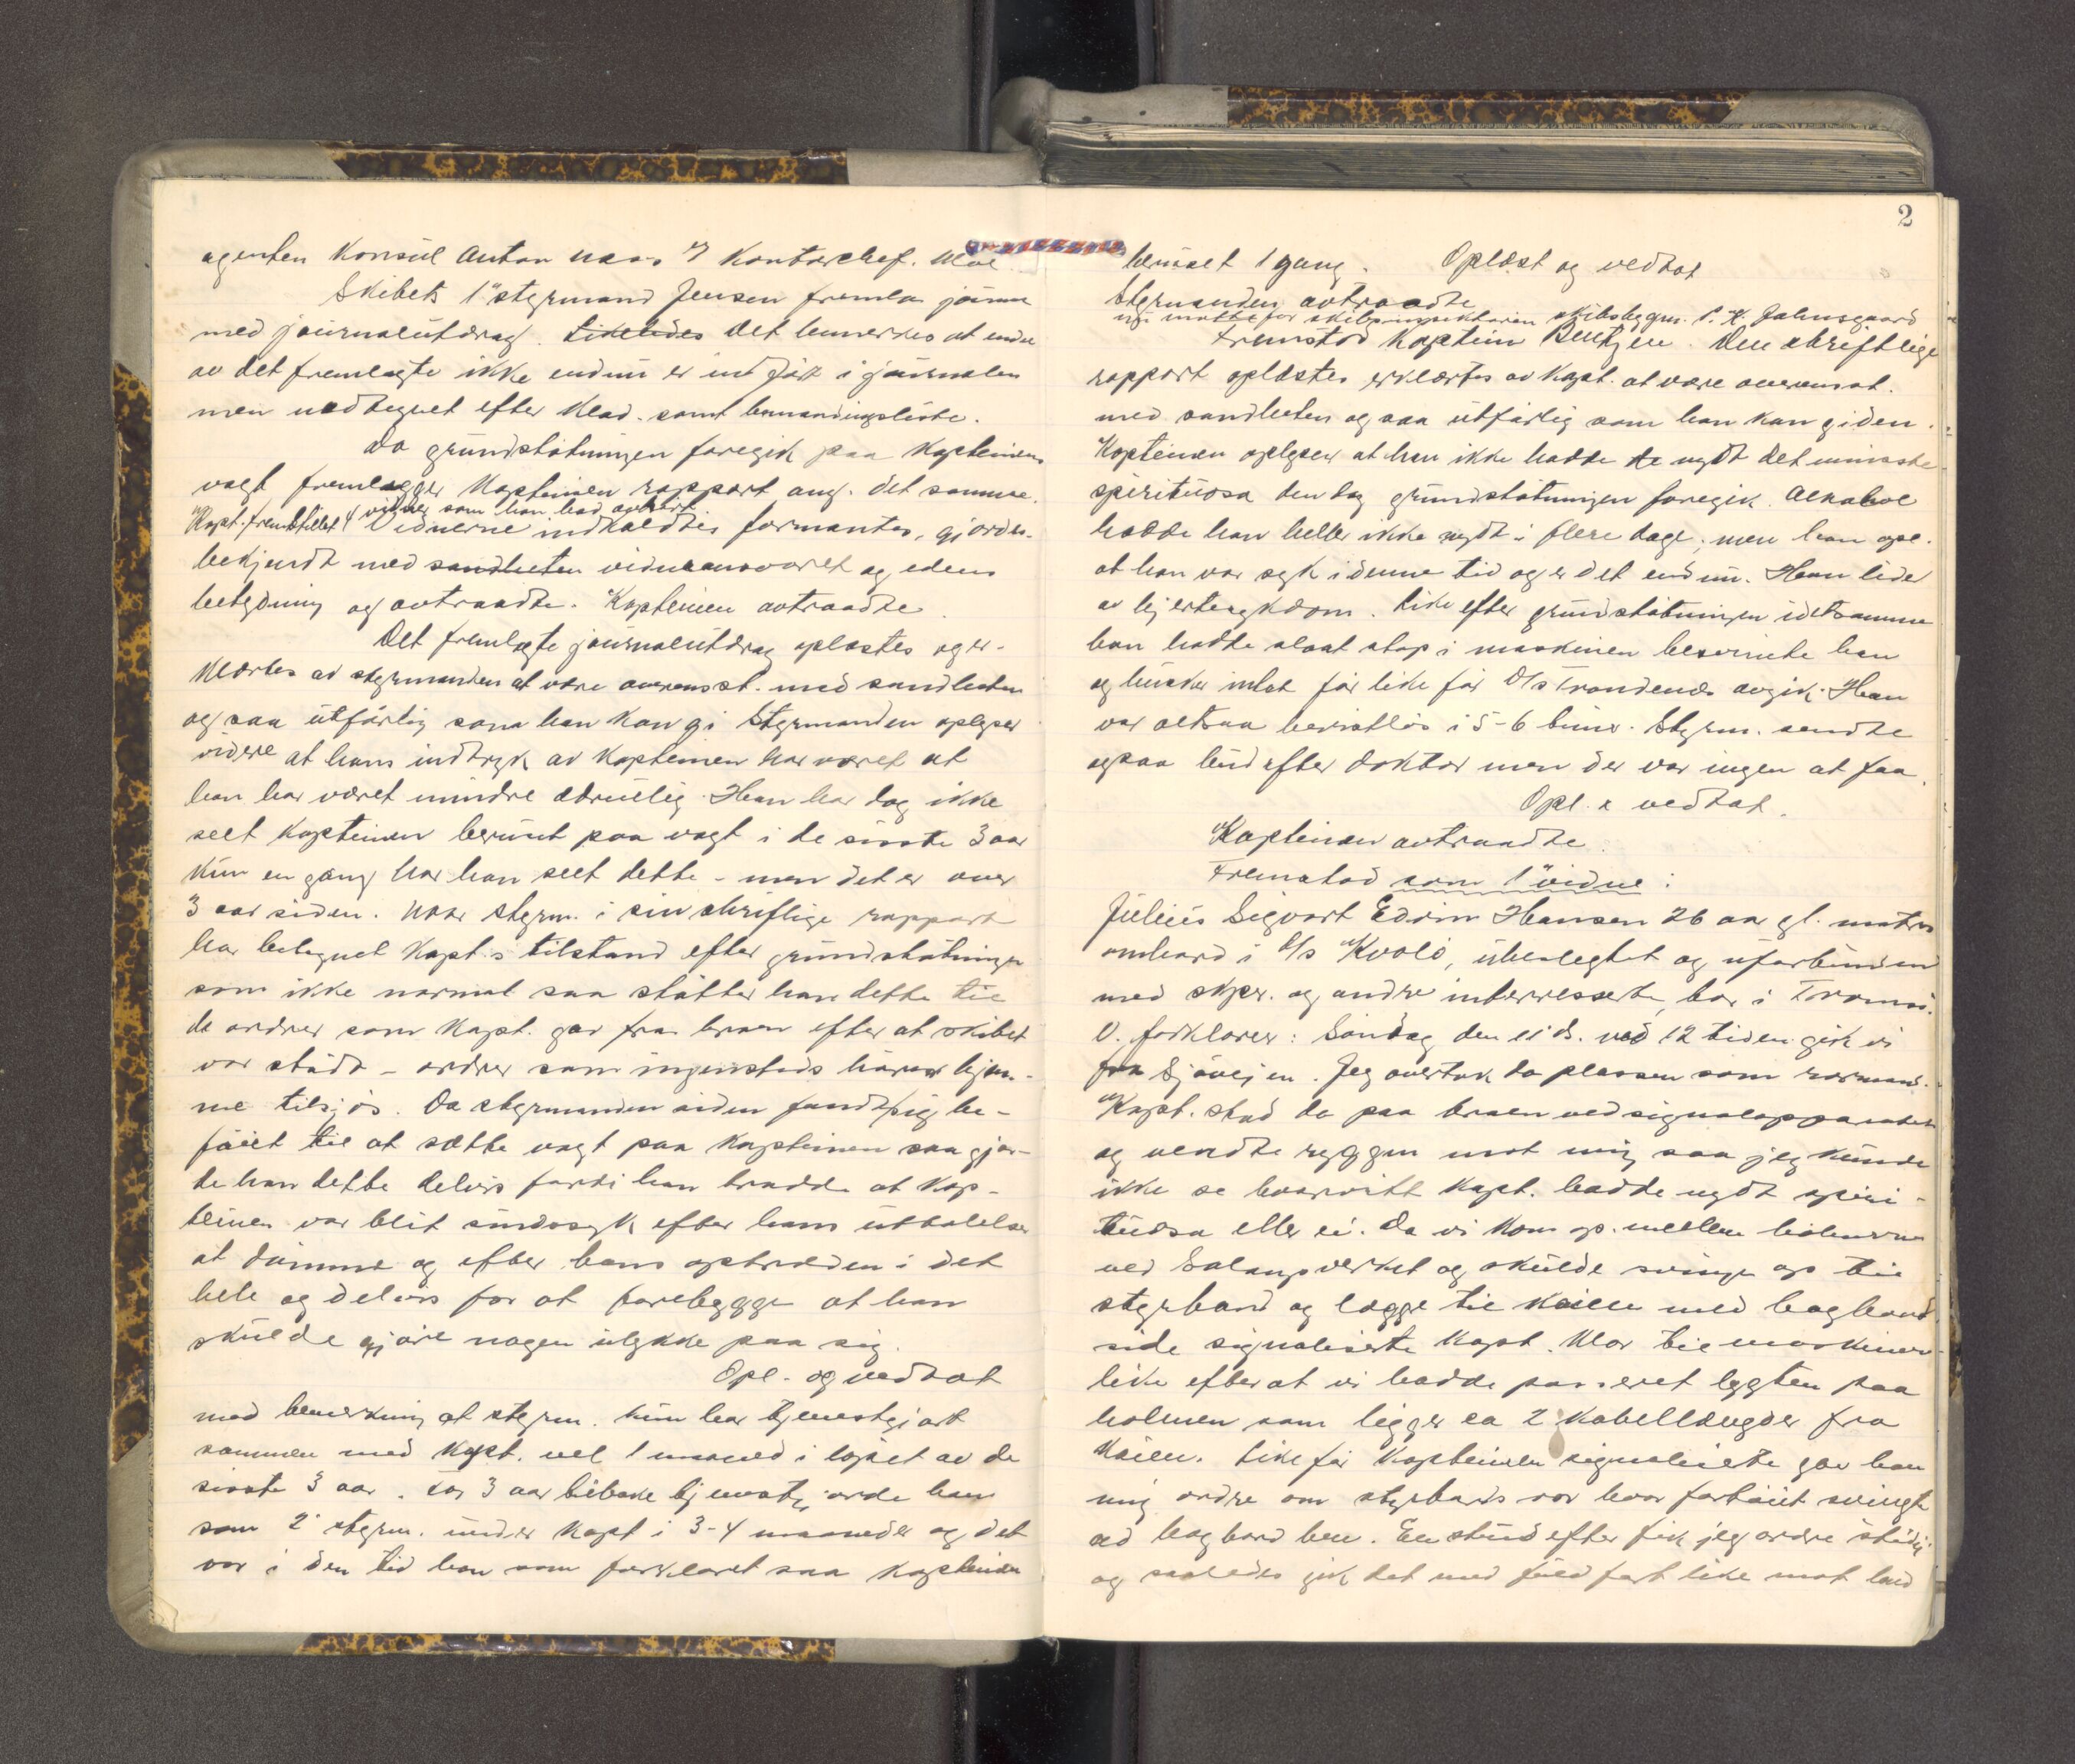 agenten Konsul Anton Naas & Kontorchef. Moe
Skibets 1ste styrmand Jensen fremla jour-
med journalutdrag. Likeledes Det bemerkes at endel
av det fremlagte ikke endnu er indført i journalen
men nedtegnet efter klad. samt bemandingsliste.
Da grundstøtningen foregik paa Kapteinens
vagt fremlægger Kapteinen rapport ang. det samme.
Kapt. fremstillet 4 vidner som han had avhørt
Vidnerne indkaldtes formantes, gjordes
bekjendt med sandheten vidneansvaret og edens
betydning og avtraadte. Kapteinen avtraadte
Det fremlagte journalutdrag oplæstes og er-
klærtes av styrmanden at være overensst. med sandheten
og saa utførlig som han kan gi Styrmanden oplyser
videre at hans indtryk av Kapteinen har været at
han har været mindre ædruelig. Han har dog ikke
seet Kapteinen beruset paa vagt i de sisste 3 aar
Kun en gang har han seet dette – men det er over
3 aar siden. Naar styrm. i sin skriftlige rapport
har betegnet Kapt.s tilstand efter grundstøtningen
som ikke normal saa støtter han dette til
de ordrer som Kapt. gav fra broen efter at skibet
var stødt – ordrer som ingensteds hører hjem-
me tilsjøs. Da styrmanden siden fandt sig be-
føiet til at sætte vagt paa Kapteinen saa gjor-
de han dette delvis fordi han trodde at Kap-
teinen var blit sindssyk efter hans uttalelser
at dømme og efter hans optræden i det
hele og delvis for at forebygge at han
skulde gjøre nogen ulykke paa sig.
Opl. og vedtat
med bemerkning at styrm. kun har tjenestgjort
sammen med Kapt. vel 1 maaned i løpet av de
sisste 3 aar. For 3 aar tilbake tjenestgjorde han
som 2' styrm. under Kapt i 3-4 maaneder og det
var i den tid han som forklaret saa Kapteinen
2
beruset 1 gang. Oplæst og vedtat
Styrmanden avtraadte
nu møtte for skibsinspektøren skibsbygm. P. K. Johnsgaard
Fremstod Kaptein Bentzen. Den skriftlige
rapport oplæstes erklærtes av Kapt. at være overensst.
med sandheten og saa utførlig som han kan gi den.
Kapteinen oplyser at han ikke hadde nydt det mindste
spirituosa den dag grundstøtningen foregik. Alkohol
hadde han heller ikke nydt i flere dage, men han opl.
at han var syk i denne tid og er det endnu. Han lider
av hjertesykdom. Like efter grundstøtningen idetsamme
han hadde slaat stop i maskinen besvimte han
og husker intet før like før D/s Trondenes avgik. Han
var altsaa bevistløs i 5-6 timer. Styrm. sendte
ogsaa bud efter doktor men der var ingen at faa.
Opl. & vedtat.
Kapteinen avtraadte.
Fremstod som 1ste vidne:
Julius Sigvart Edvin Hansen 26 aar gl. matros
ombord i D/s Kvalø, ubeslegtet og uforbunden
med skper. og andre interresserte, bor i Tromsø.
V. forklarer: Søndag den 11 ds. ved 12 tiden gik vi
fra Sjøvejen. Jeg overtok da plassen som rormand.
Kapt. stod da paa broen ved signalapparatet
og vendte ryggen mot mig saa jeg kunde
ikke se hvorvidt Kapt. hadde nydt spiri-
tuosa eller ei. Da vi kom op mellem holmerne
ved Salangsverket og skulde svinge op til
styrbord og lægge til kaien med bagbord
side signaliserte Kapt. Klar til maskinen
like efter at vi hadde passeret lygten paa
holmen som ligger ca 2 kabellængder fra
Kaien. Like før Kapteinen signaliserte gav han
mig ordre om styrbords ror hvor fartøiet svingte
ad bagbord hen. En stund efter fik jeg ordre støtt
og saaledes gik det med fuld fart like mot land